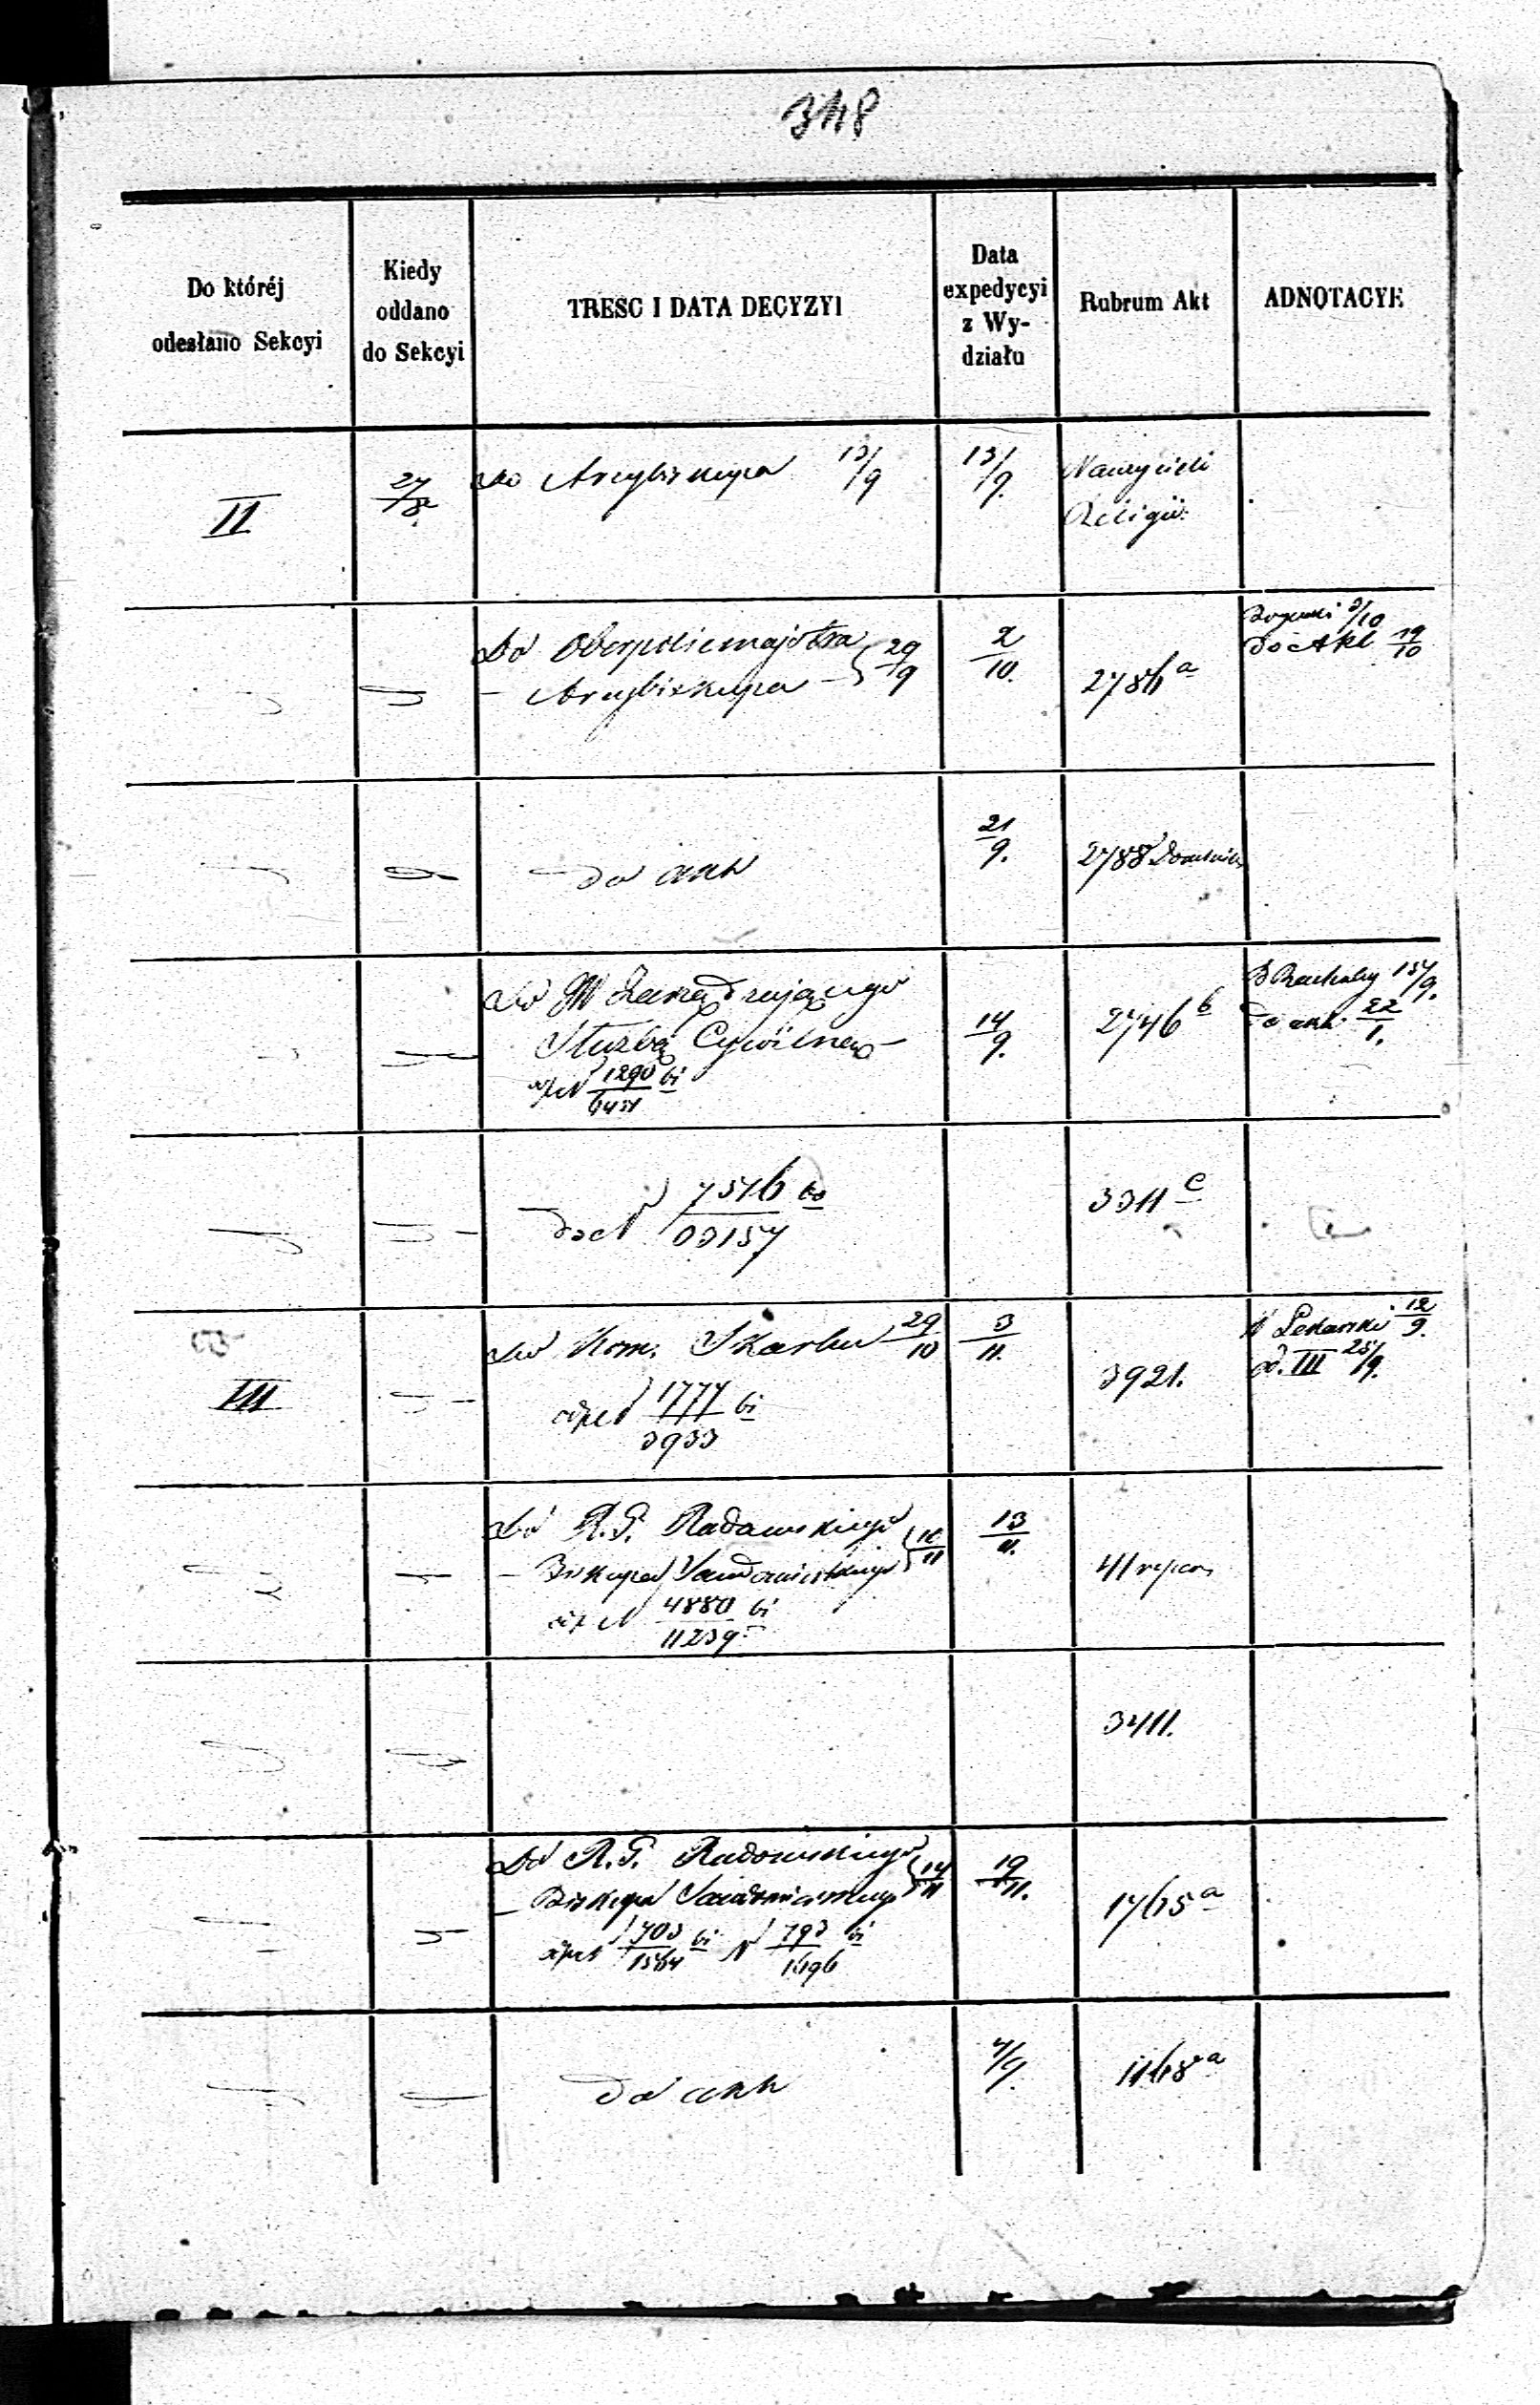 348
Do któréj
odesłano Sekcyi
Kiedy
oddano
do Sekcyi
TRESC I DATA DECYZYI
Data
expedycyi
z Wy-
działu
Rubrum Akt
ADNOTACYE
II
27/8
Do Arcybiskupa 13/9
13/9
Nauczyciele
Religii.
Do Oberpolicmajstra
– Arcybiskupa – } 29/9
2/10.
2786 a
3/10
Do Akt 19/10
do akt
21/9.
2788
Do JW Zarządzającego
Służbą Cywilną
14/9.
2746 b
15/9.
Do akt
do N 7576
3311 c
III
Do Kom. Skarbu 29/10
1777/3933 bi
3/11.
3921.
12/9.
III 25/9.
Do R. G. Radomskiego
– Biskupa Sandomierskiego
4880/11239 bi
13/11.
3411.
Do R. G. Radomskiego
– Biskupa Sandomierskiego
19/11.
1765 a
do akt
1168 a